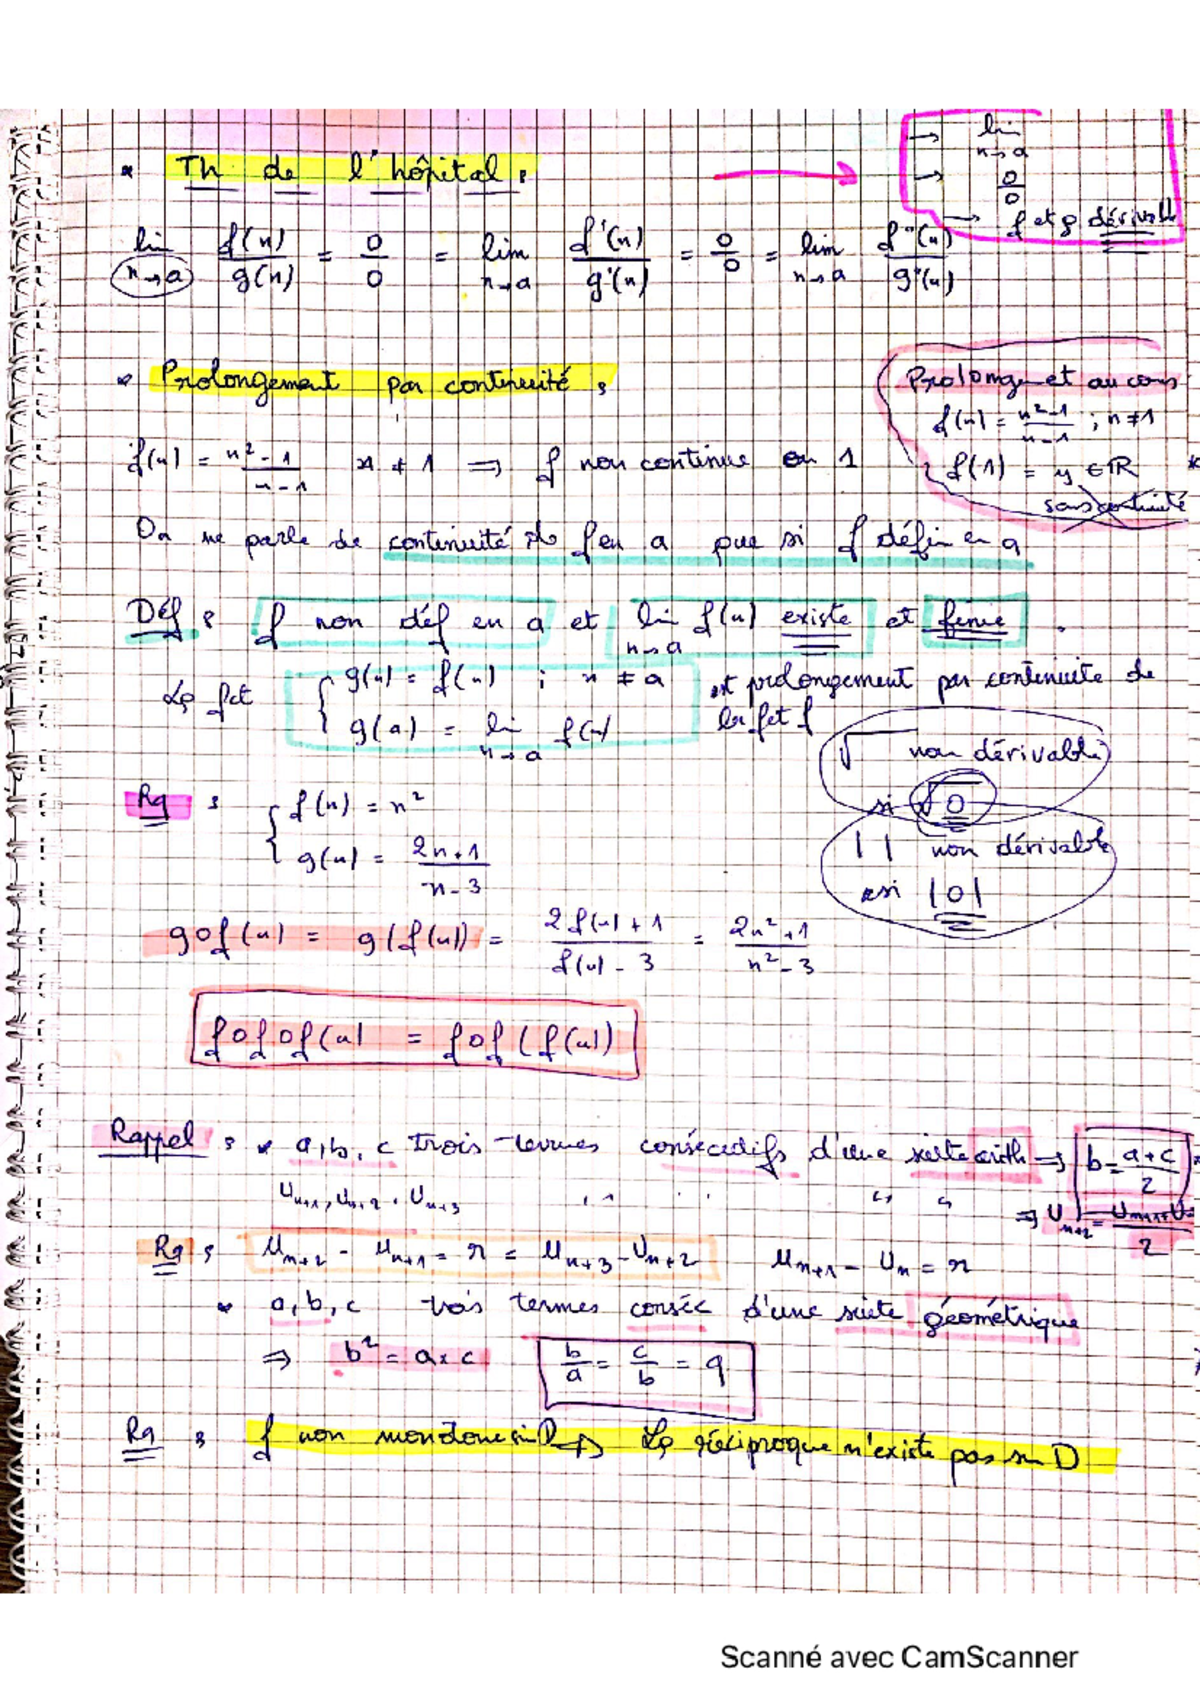 * Th de l'hôpital :
→ lim x→a
→ 0/0
→ f et g dérivable
lim x→a f(x)/g(x) = 0/0 = lim x→a f'(x)/g'(x) = 0/0 = lim x→a f''(x)/g''(x)
* Prolongement par continuité :
f(x) = x²-1/x-1 x ≠ 1 ⇒ f non continue en 1
f(x) = x²-1/x-1 ; x≠1
f(1) = y ∈ ℝ
sans continuité
On ne parle de continuité de f en a que si f défini en a
Déf : f non déf en a et lim x→a f(x) existe et finie .
La fct { g(x) = f(x) ; x ≠ a
g(a) = lim x→a f(x)
est prolongement par continuité de la fct f
√ non dérivable
si √0
| | non dérivable
si |0|
Rq : { f(x) = x²
g(x) = 2x+1/x-3
gof(x) = g(f(x)) = 2f(x)+1/f(x)-3 = 2x²+1/x²-3
fofof(x) = fof(f(x))
Rappel : * a, b, c trois termes consécutifs d'une suite arith ⇒ b = a+c/2
Un+1, Un+2, Un+3 " " " "
Rq : Un+2 - Un+1 = r = Un+3 - Un+2 Un+1 - Un = r
* a, b, c trois termes conséc d'une suite géométrique
⇒ b² = a×c b/a = c/b = q
Rq : f non monotone sur D ⇏ La réciproque n'existe pas sur D
Scanné avec CamScanner